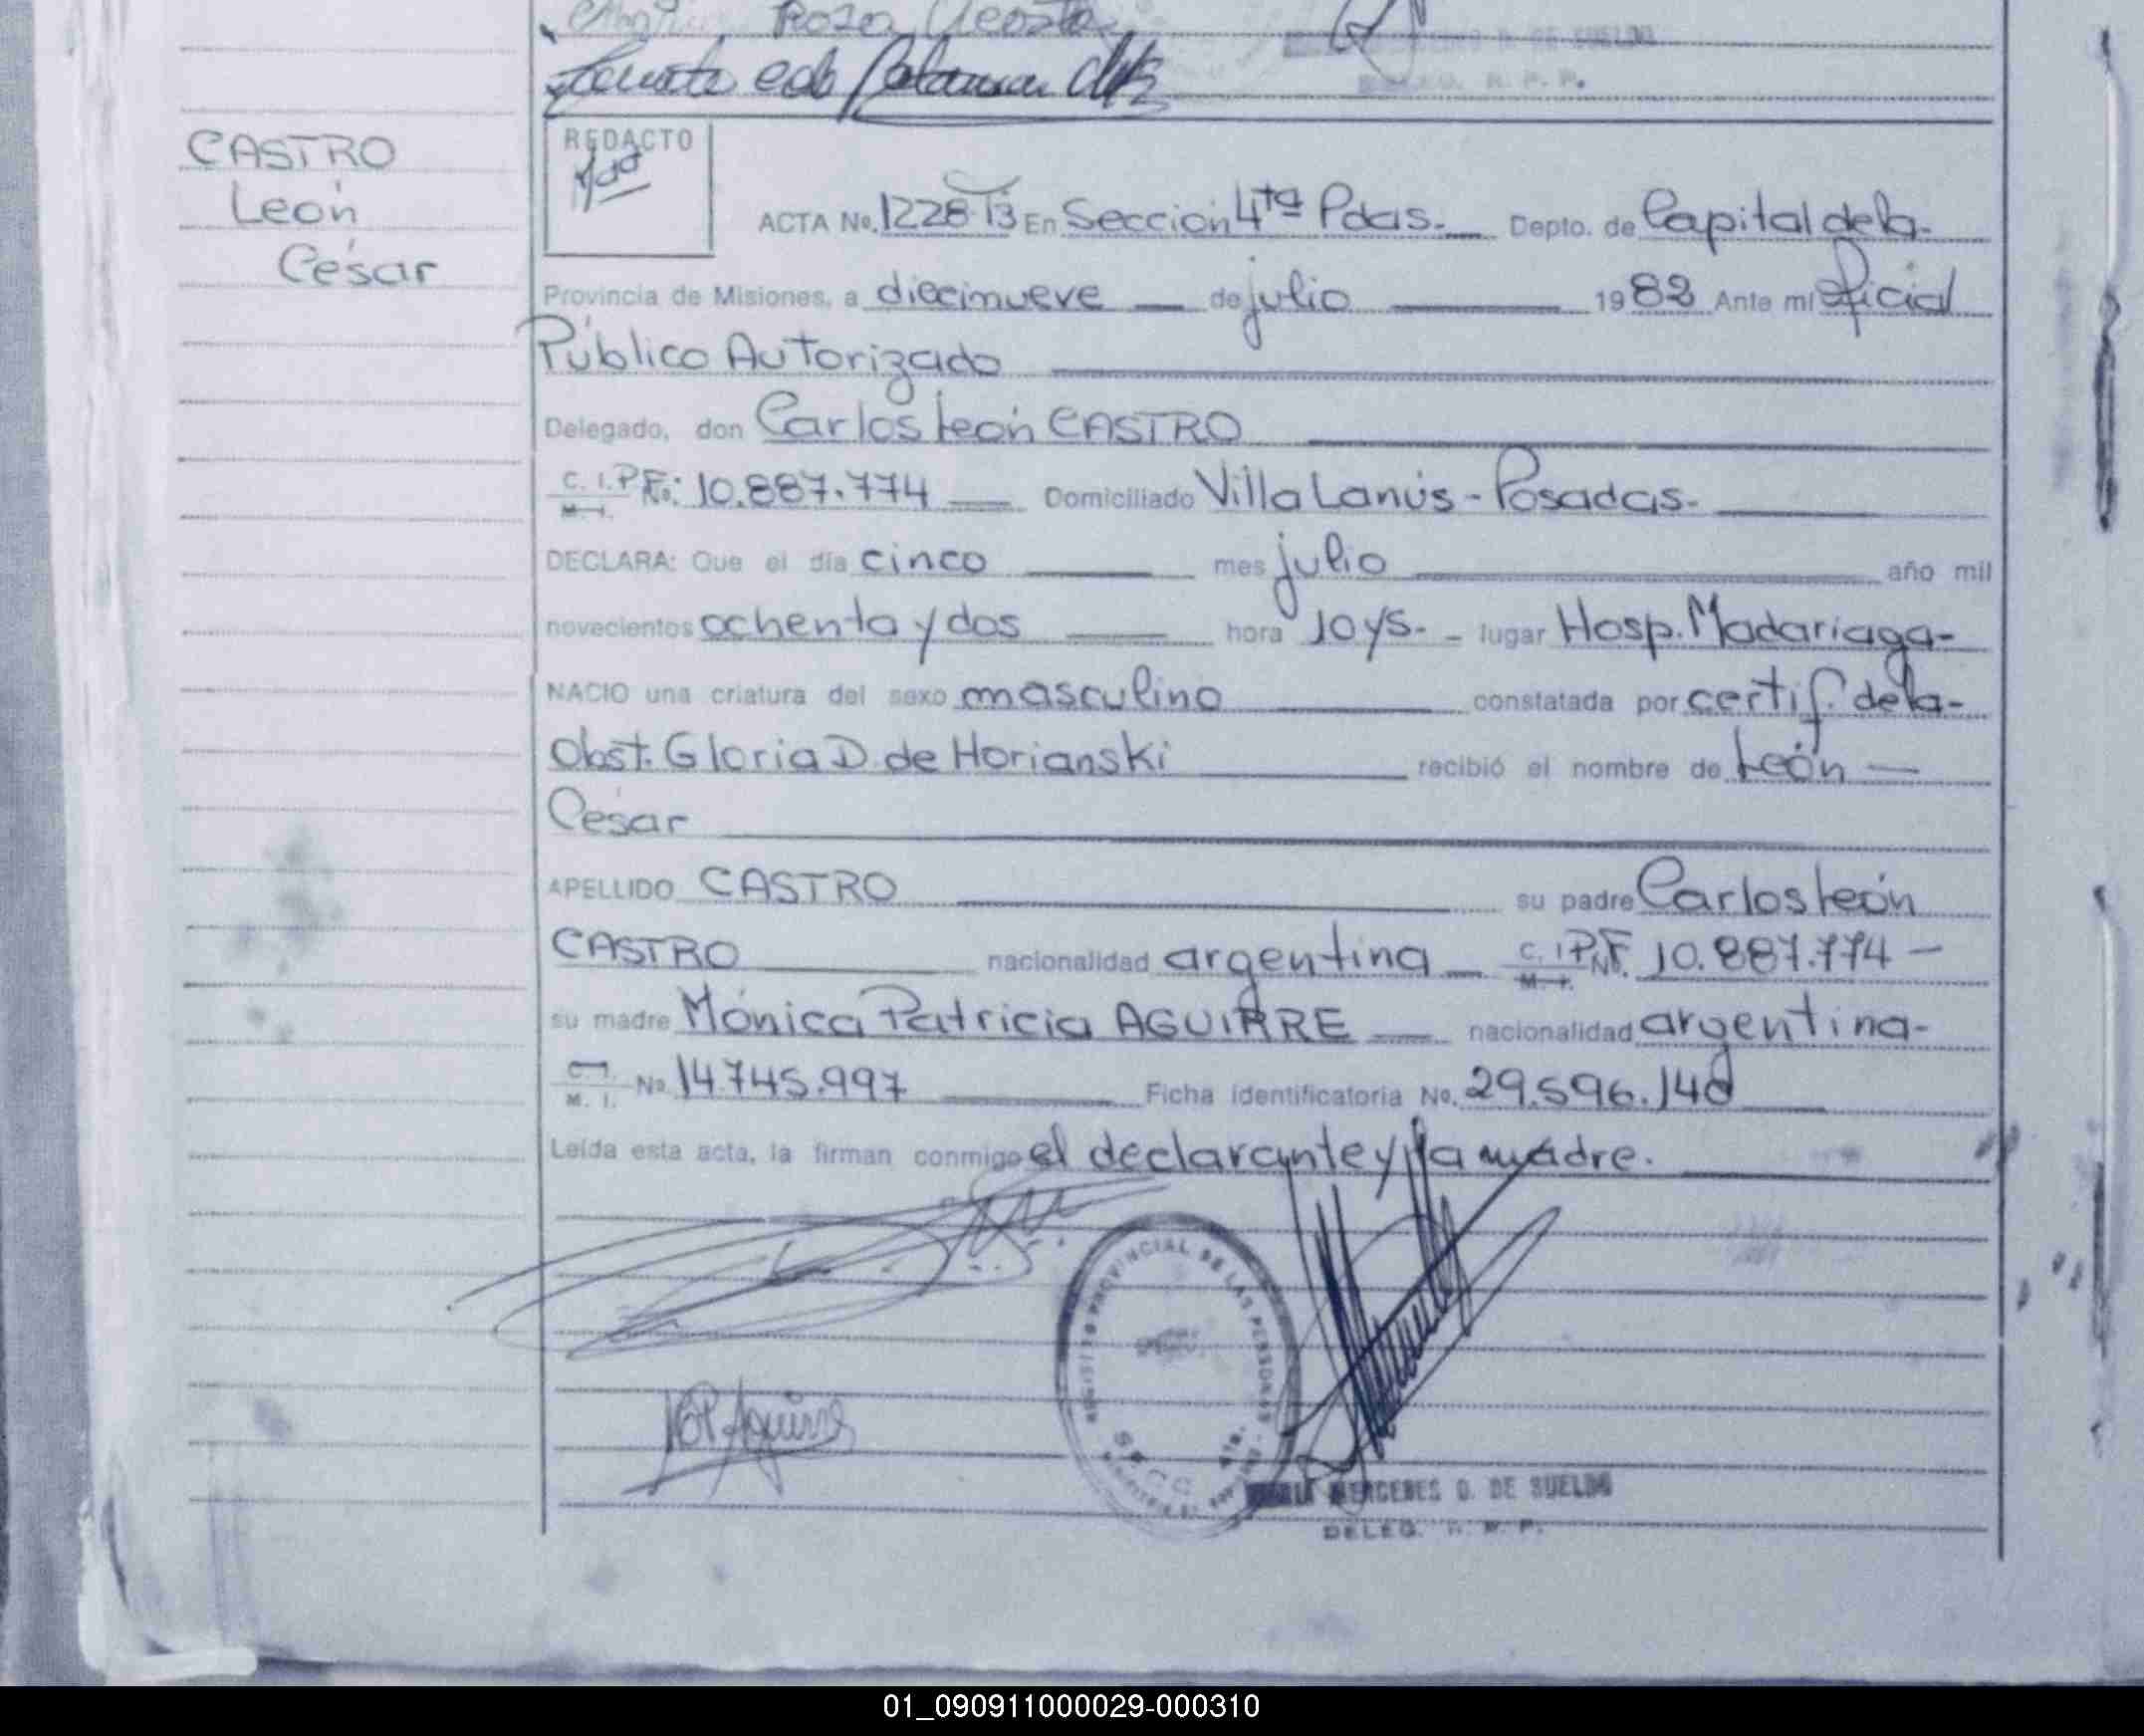 Rosa Acosta
DE SUELDO
DELEG. R. P. P.
CASTRO
León
César
REDACTO
ACTA No. 1228-T3 En Sección 4ta Pdas. Depto. de Capital de la
Provincia de Misiones, a diecinueve de julio 1982 Ante mi Oficial
Público Autorizado
Delegado, don Carlos León CASTRO
C. I. P.F. No.: 10.887.774 Domiciliado Villa Lanús - Posadas.
M. I.
DECLARA: Que el día cinco mes julio año mil
novecientos ochenta y dos hora 10 y 5. lugar Hosp. Madariaga-
NACIO una criatura del sexo masculino constatada por certif. de la-
Obst. Gloria D. de Horianski recibió el nombre de León
César
APELLIDO CASTRO su padre Carlos León
CASTRO nacionalidad argentina C. I. P.F. No. 10.887.774
M. I.
su madre Mónica Patricia AGUIRRE nacionalidad argentina-
C. I.
M. I. No. 14.745.997 Ficha identificatoria No. 29.596.140
Leída esta acta, la firman conmigo el declarante y la madre.
REGISTRO PROVINCIAL DE LAS PERSONAS
SECC. 4ta.
MPAguirre
MARIA MERCEDES O. DE SUELDO
DELEG. R. P. P.
01_090911000029-000310